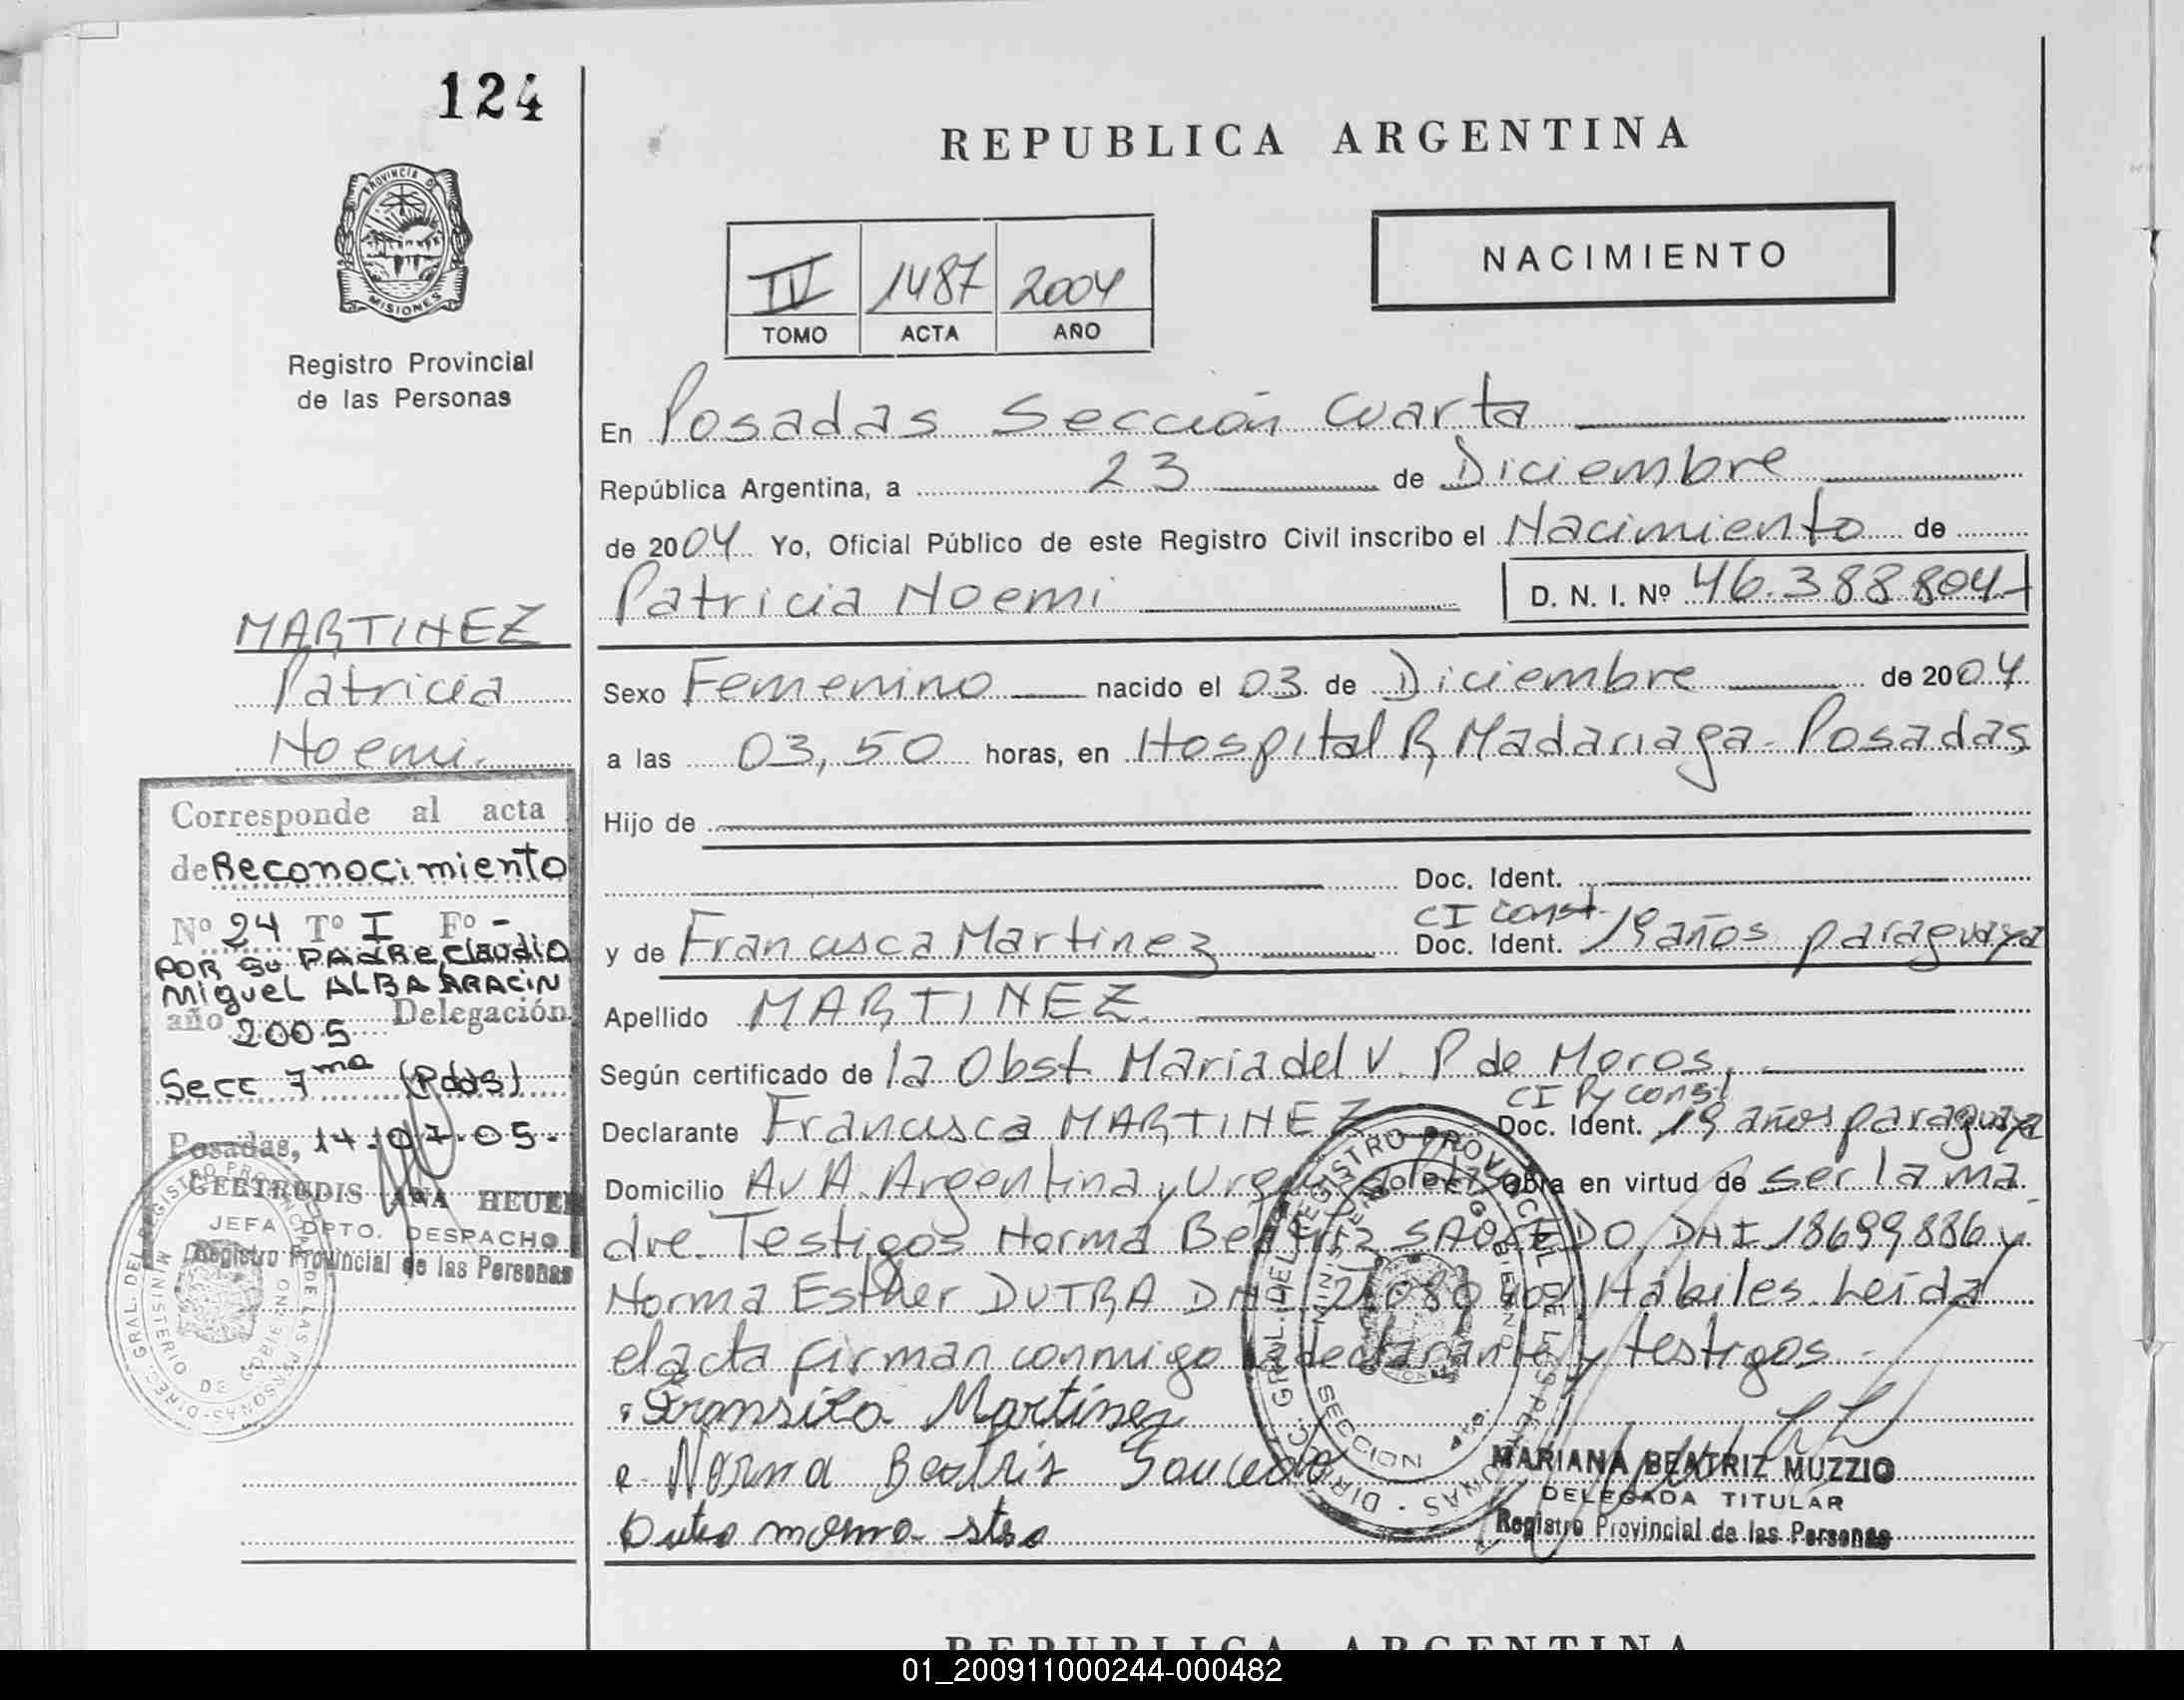 124
PROVINCIA DE
MISIONES
Registro Provincial
de las Personas
MARTINEZ
Patricia
Noemi.
Corresponde al acta
de Reconocimiento
Nº 24 Tº I Fº -
POR su PADRE Claudio
Miguel ALBARRACIN
año 2005 Delegación
Secc 7ma (Pdas)
Posadas, 14.07.05.
GERTRUDIS ANA
JEFA DPTO. DESPACHO
Registro Provincial de las Personas
REPUBLICA ARGENTINA
NACIMIENTO
IV 1487 2004
TOMO ACTA AÑO
En Posadas Sección Cuarta
República Argentina, a 23 de Diciembre
de 2004 Yo, Oficial Público de este Registro Civil inscribo el Nacimiento de
Patricia Noemi D. N. I. Nº 46.388804
Sexo Femenino nacido el 03 de Diciembre de 2004
a las 03,50 horas, en Hospital R, Madariaga - Posadas
Hijo de
Doc. Ident.
CI const.
y de Francisca Martinez Doc. Ident. 19 años paraguaya
Apellido MARTINEZ
Según certificado de la Obst Maria del V. P de Moros,
CI Py const
Declarante Francisca MARTINEZ Doc. Ident. 19 años paraguaya
Domicilio Av A. Argentina y Obra en virtud de ser la ma
dre. Testigos Norma Beatriz SAUCEDO, DNI 18699886 y
Norma Esther DUTRA DNI Hábiles. Leída
el acta firman conmigo la declarante y testigos -
Fransisca Martinez
Norma Beatris Saucedo
Dutra norma
MARIANA BEATRIZ MUZZIO
DELEGADA TITULAR
Registro Provincial de las Personas
REPUBLICA ARGENTINA
01_200911000244-000482